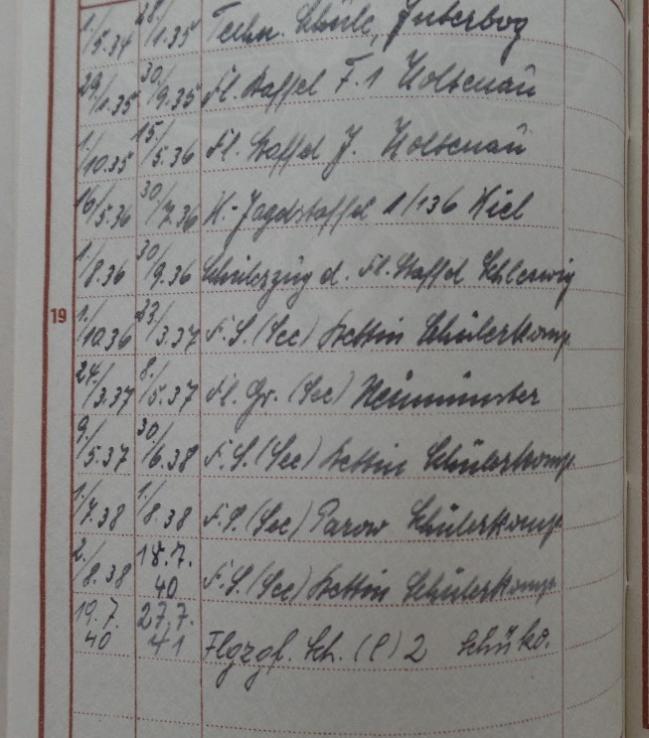 1./5.34 28./1.35 Techn. Schule, Jüterbog
29./1.35 30./9.35 Fl. Staffel F.1 Holtenau
1./10.35 15./5.36 Fl. Staffel J. Holtenau
16/5.36 30/7.36 K.-Jagdstaffel 1/136 Kiel
1./8.36 30/9.36 Schülerzug d. Fl. Staffel Schleswig
19
1./10.36 23./3.37 F.S. (See) Stettin Schülerkomp.
24./3.37 8./5.37 Fl. Gr. (See) Neumünster
9./5.37 30./6.38 F.S. (See) Stettin Schülerkomp.
1./7.38 1./8.38 F.S. (See) Parow Schülerkomp.
2./8.38 18.7.40 F.S. (See) Stettin Schülerkomp.
19.7.40 27.7.41 Flgzgf. Sch. (C) 2 Schüko.